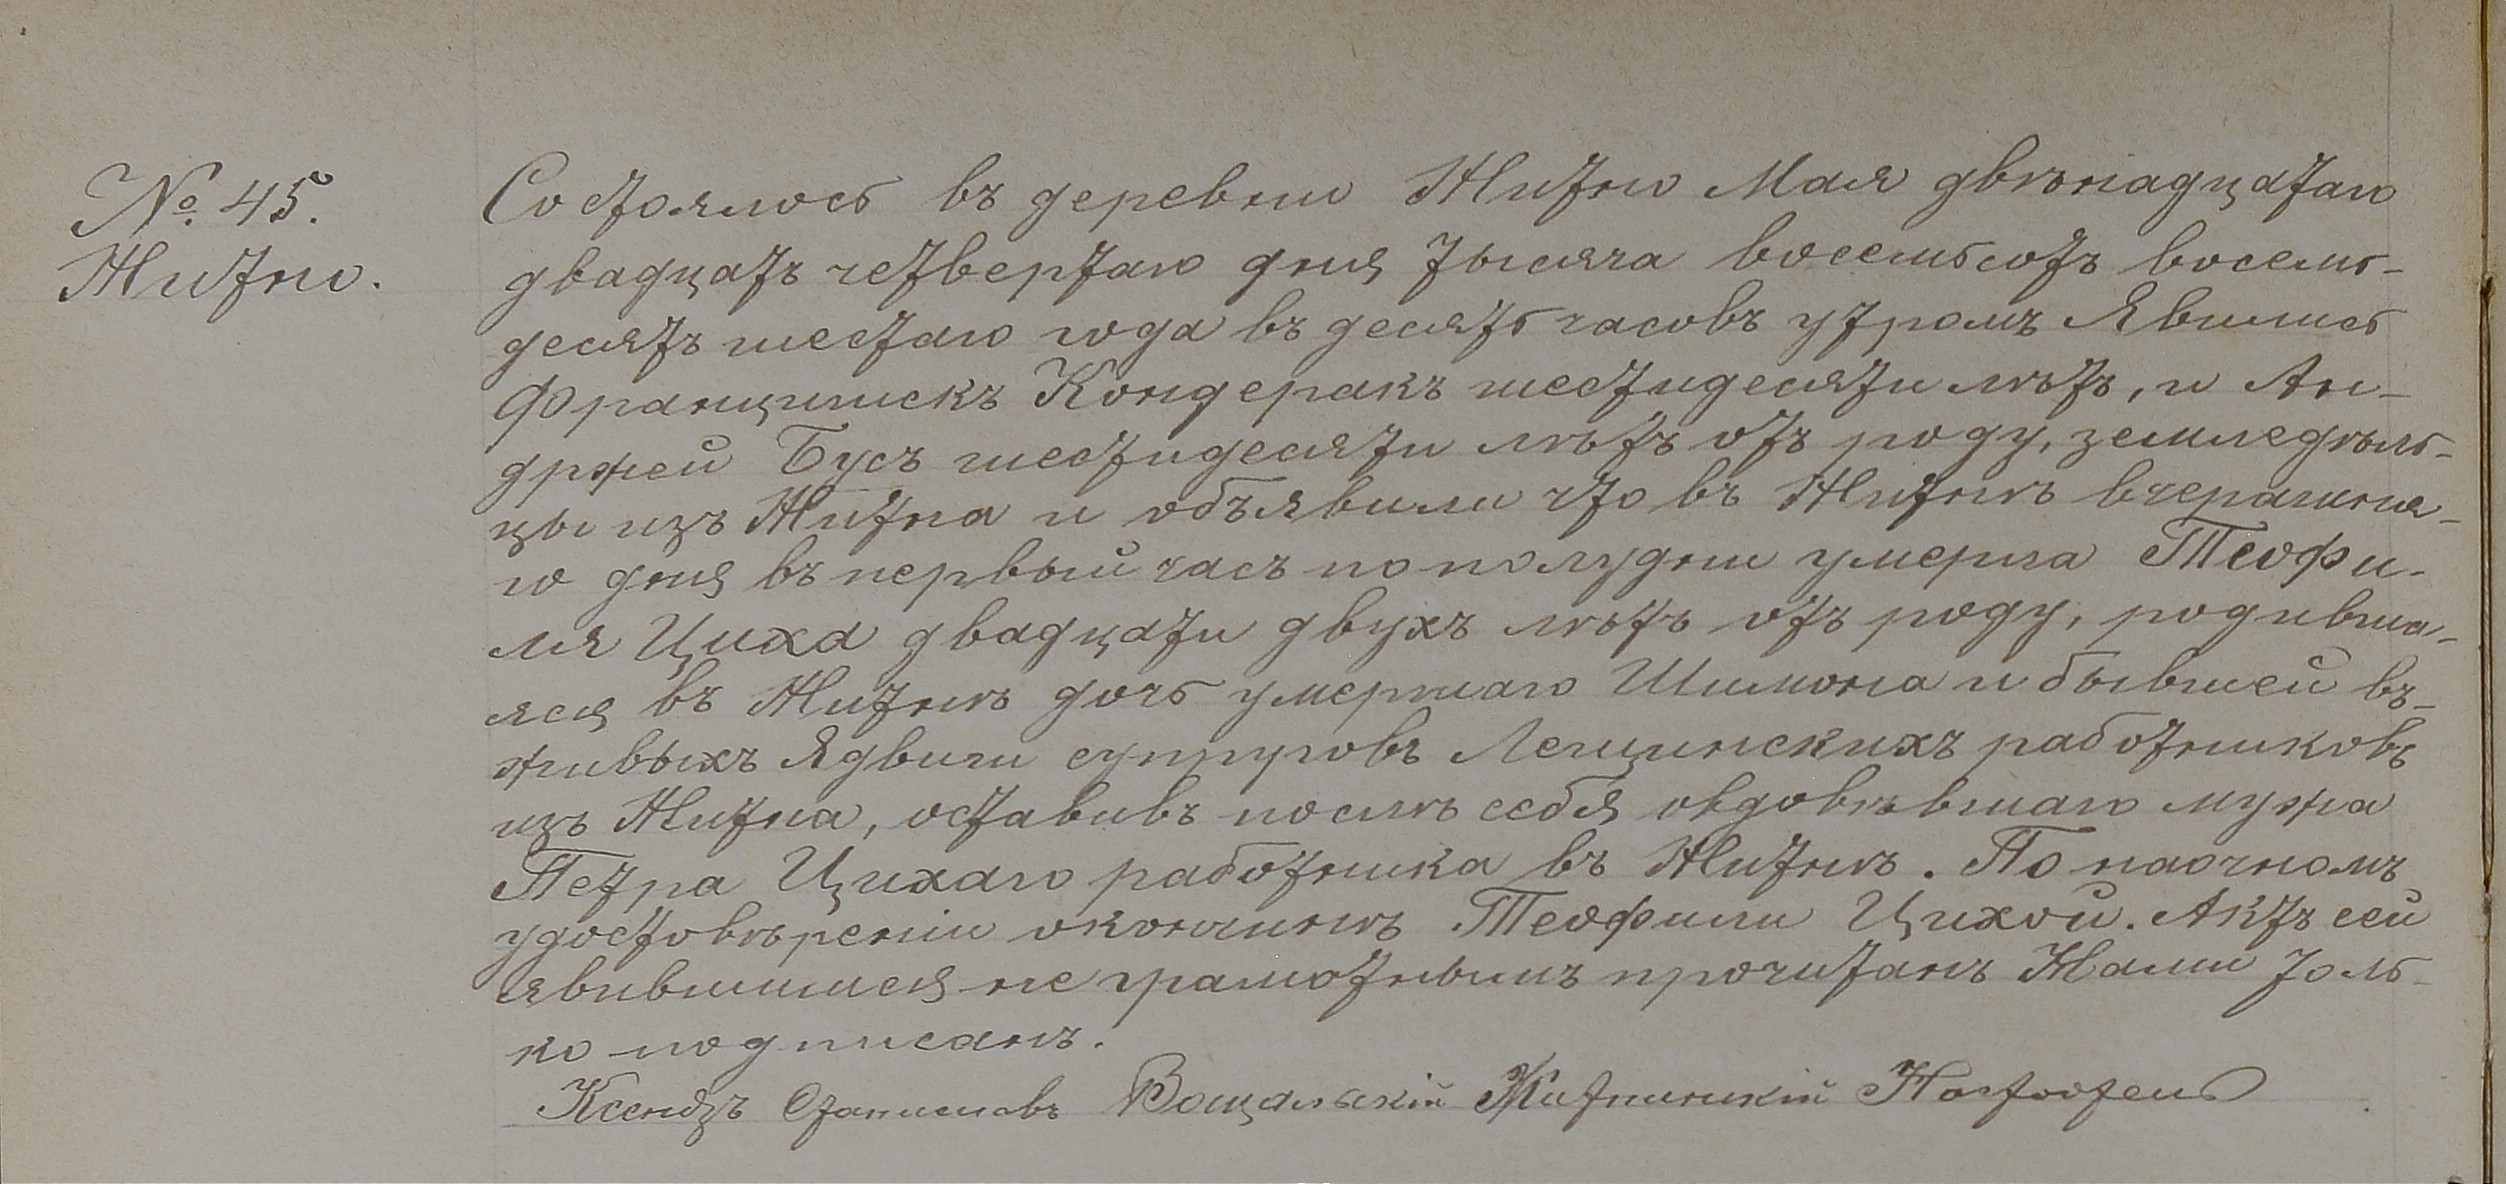 №. 45.
Житно.
Состоялось въ деревни Житно Мая двѣнадцатаго
двадцать четвертаго дня тысяча восемьсотъ восемь-
десятъ шестаго года въ десять часовъ утромъ Явились
Францишекъ Кондеракъ шестидесяти лѣтъ, и Ан-
држей Бусъ шестидесяти лѣтъ отъ роду, земледѣль-
цы изъ Житна и объявили что въ Житнѣ вчерашня-
го дня въ первый часъ по полудни умерла Теофи-
ля Циха двадцати двухъ лѣтъ отъ роду, родивша-
яся въ Житнѣ дочь умершаго Шимона и бывшей въ-
живыхъ Ядвиги супруговъ Лещинскихъ работниковъ
изъ Житна, оставивъ послѣ себя овдовѣвшаго мужа
Петра Цихаго работника въ Житнѣ. По наочномъ
удостовѣреніи о кончинѣ Теофили Цихой. Актъ сей
явившимся не грамотнымъ прочитанъ Нами толь-
ко подписанъ.
Ксендзъ Станиславъ Житнинскій Настоятель